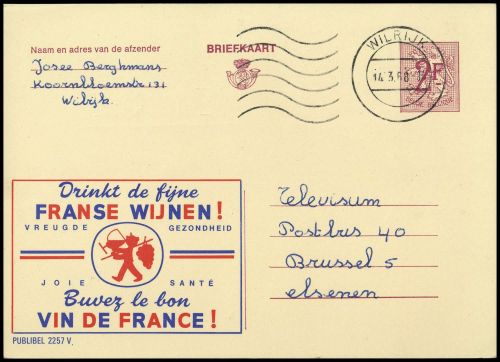 Naam en adres van de afzender
Josee Berghmans
Koornbloemstr 131
Wilrijk
BRIEFKAART
WILRIJK
14.3.68
2F
Drinkt de fijne
FRANSE WIJNEN!
VREUGDE GEZONDHEID
JOIE SANTÉ
Buvez le bon
VIN DE FRANCE!
PUBLIBEL 2257 V.
Televisum
Postbus 40
Brussel 5
elsenen